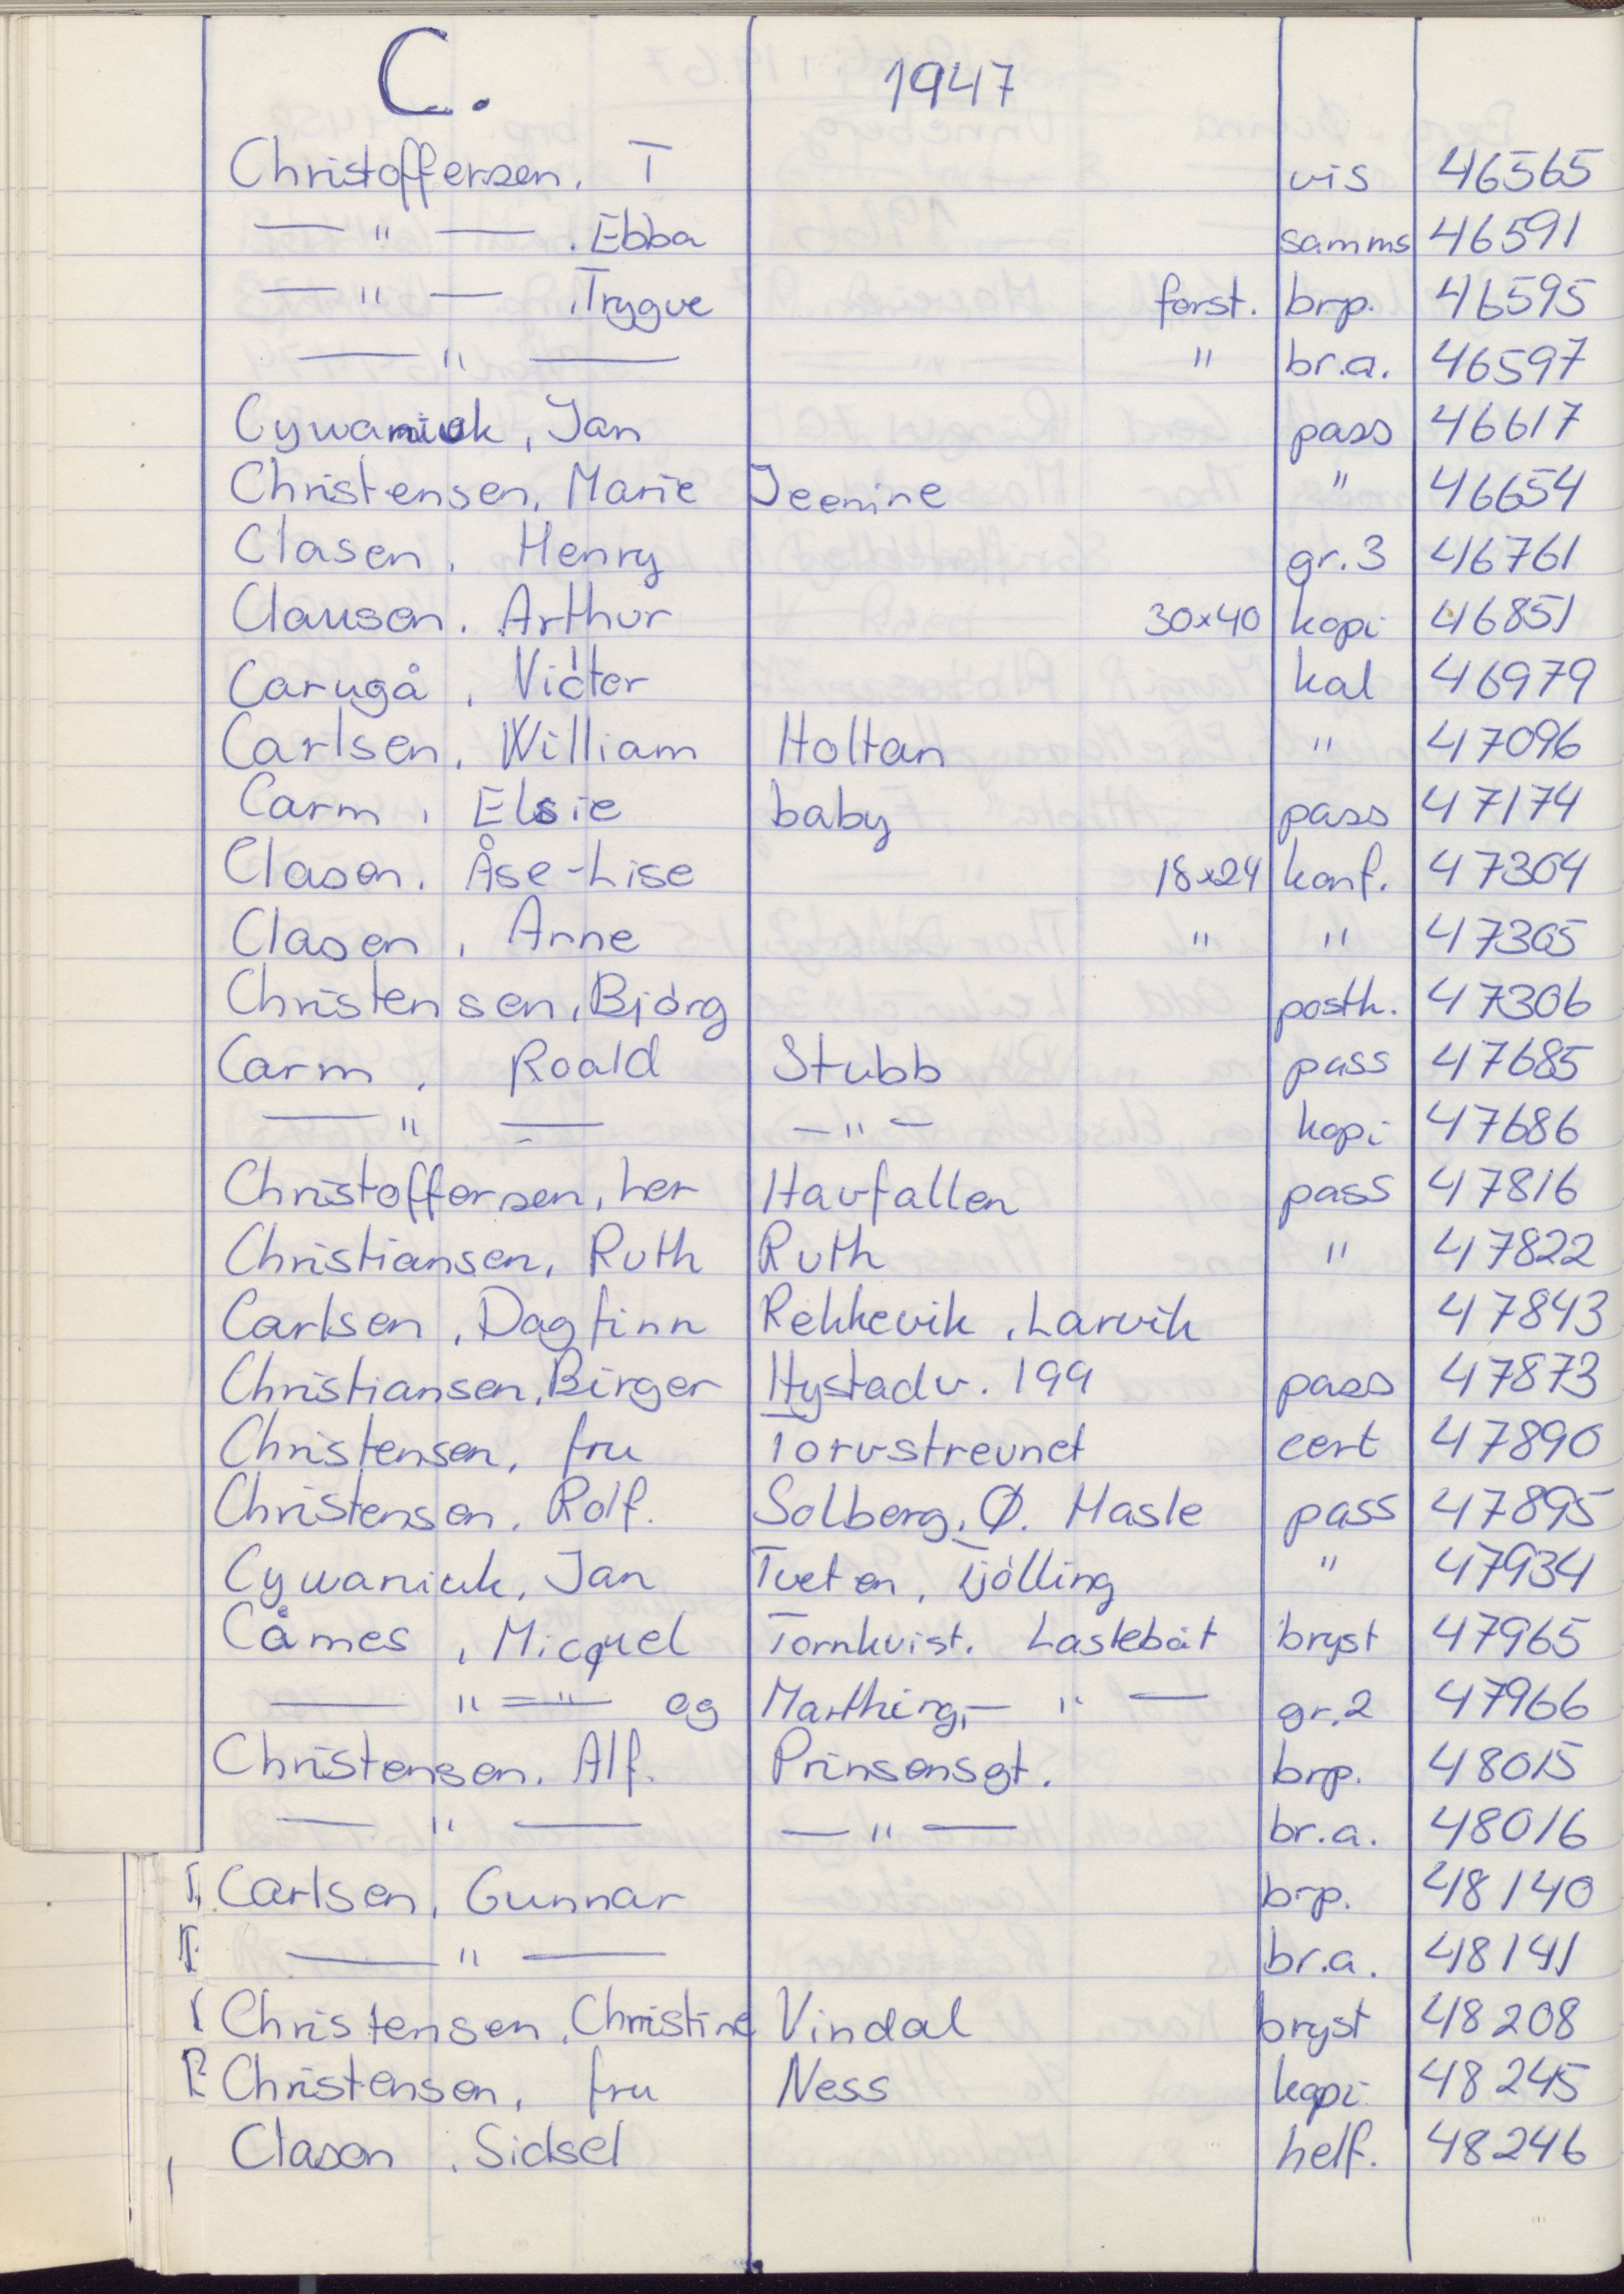 C. 1947
Christoffersen, T vis 46565
— " — , Ebba samms 46591
— " — , Trygve forst. brp. 46595
— " — " br.a. 46597
Cywaniuk, Jan pass 46617
Christensen, Marie Jeenine " 46654
Clasen, Henry gr.3 46761
Clausen, Arthur 30x40 kopi 46851
Carugå, Victor kal 46979
Carlsen, William Holtan " 47096
Carm, Elsie baby pass 47174
Clasen, Åse-Lise 18x24 konf. 47304
Clasen, Arne " " 47305
Christensen, Bjørg postk. 47306
Carm, Roald Stubb pass 47685
— " — — " — kopi 47686
Christoffersen, her Havfallen pass 47816
Christiansen, Ruth Ruth " 47822
Carlsen, Dagfinn Rekkevik, Larvik 47843
Christiansen, Birger Hystadv. 199 pass 47873
Christensen, fru Torvstrevnet cert 47890
Christensen, Rolf. Solberg, Ø. Hasle pass 47895
Cywaniuk, Jan Tveten, Tjølling " 47934
Cåmes, Micquel Tornkvist. Lastebåt bryst 47965
— " = " — og Marthing, — " — gr.2 47966
Christensen, Alf. Prinsensgt. brp. 48015
— " — — " — br.a. 48016
Carlsen, Gunnar brp. 48140
— " — br.a. 48141
Christensen, Christine Vindal bryst 48208
Christensen, fru Ness kopi 48245
Clasen, Sidsel helf. 48246